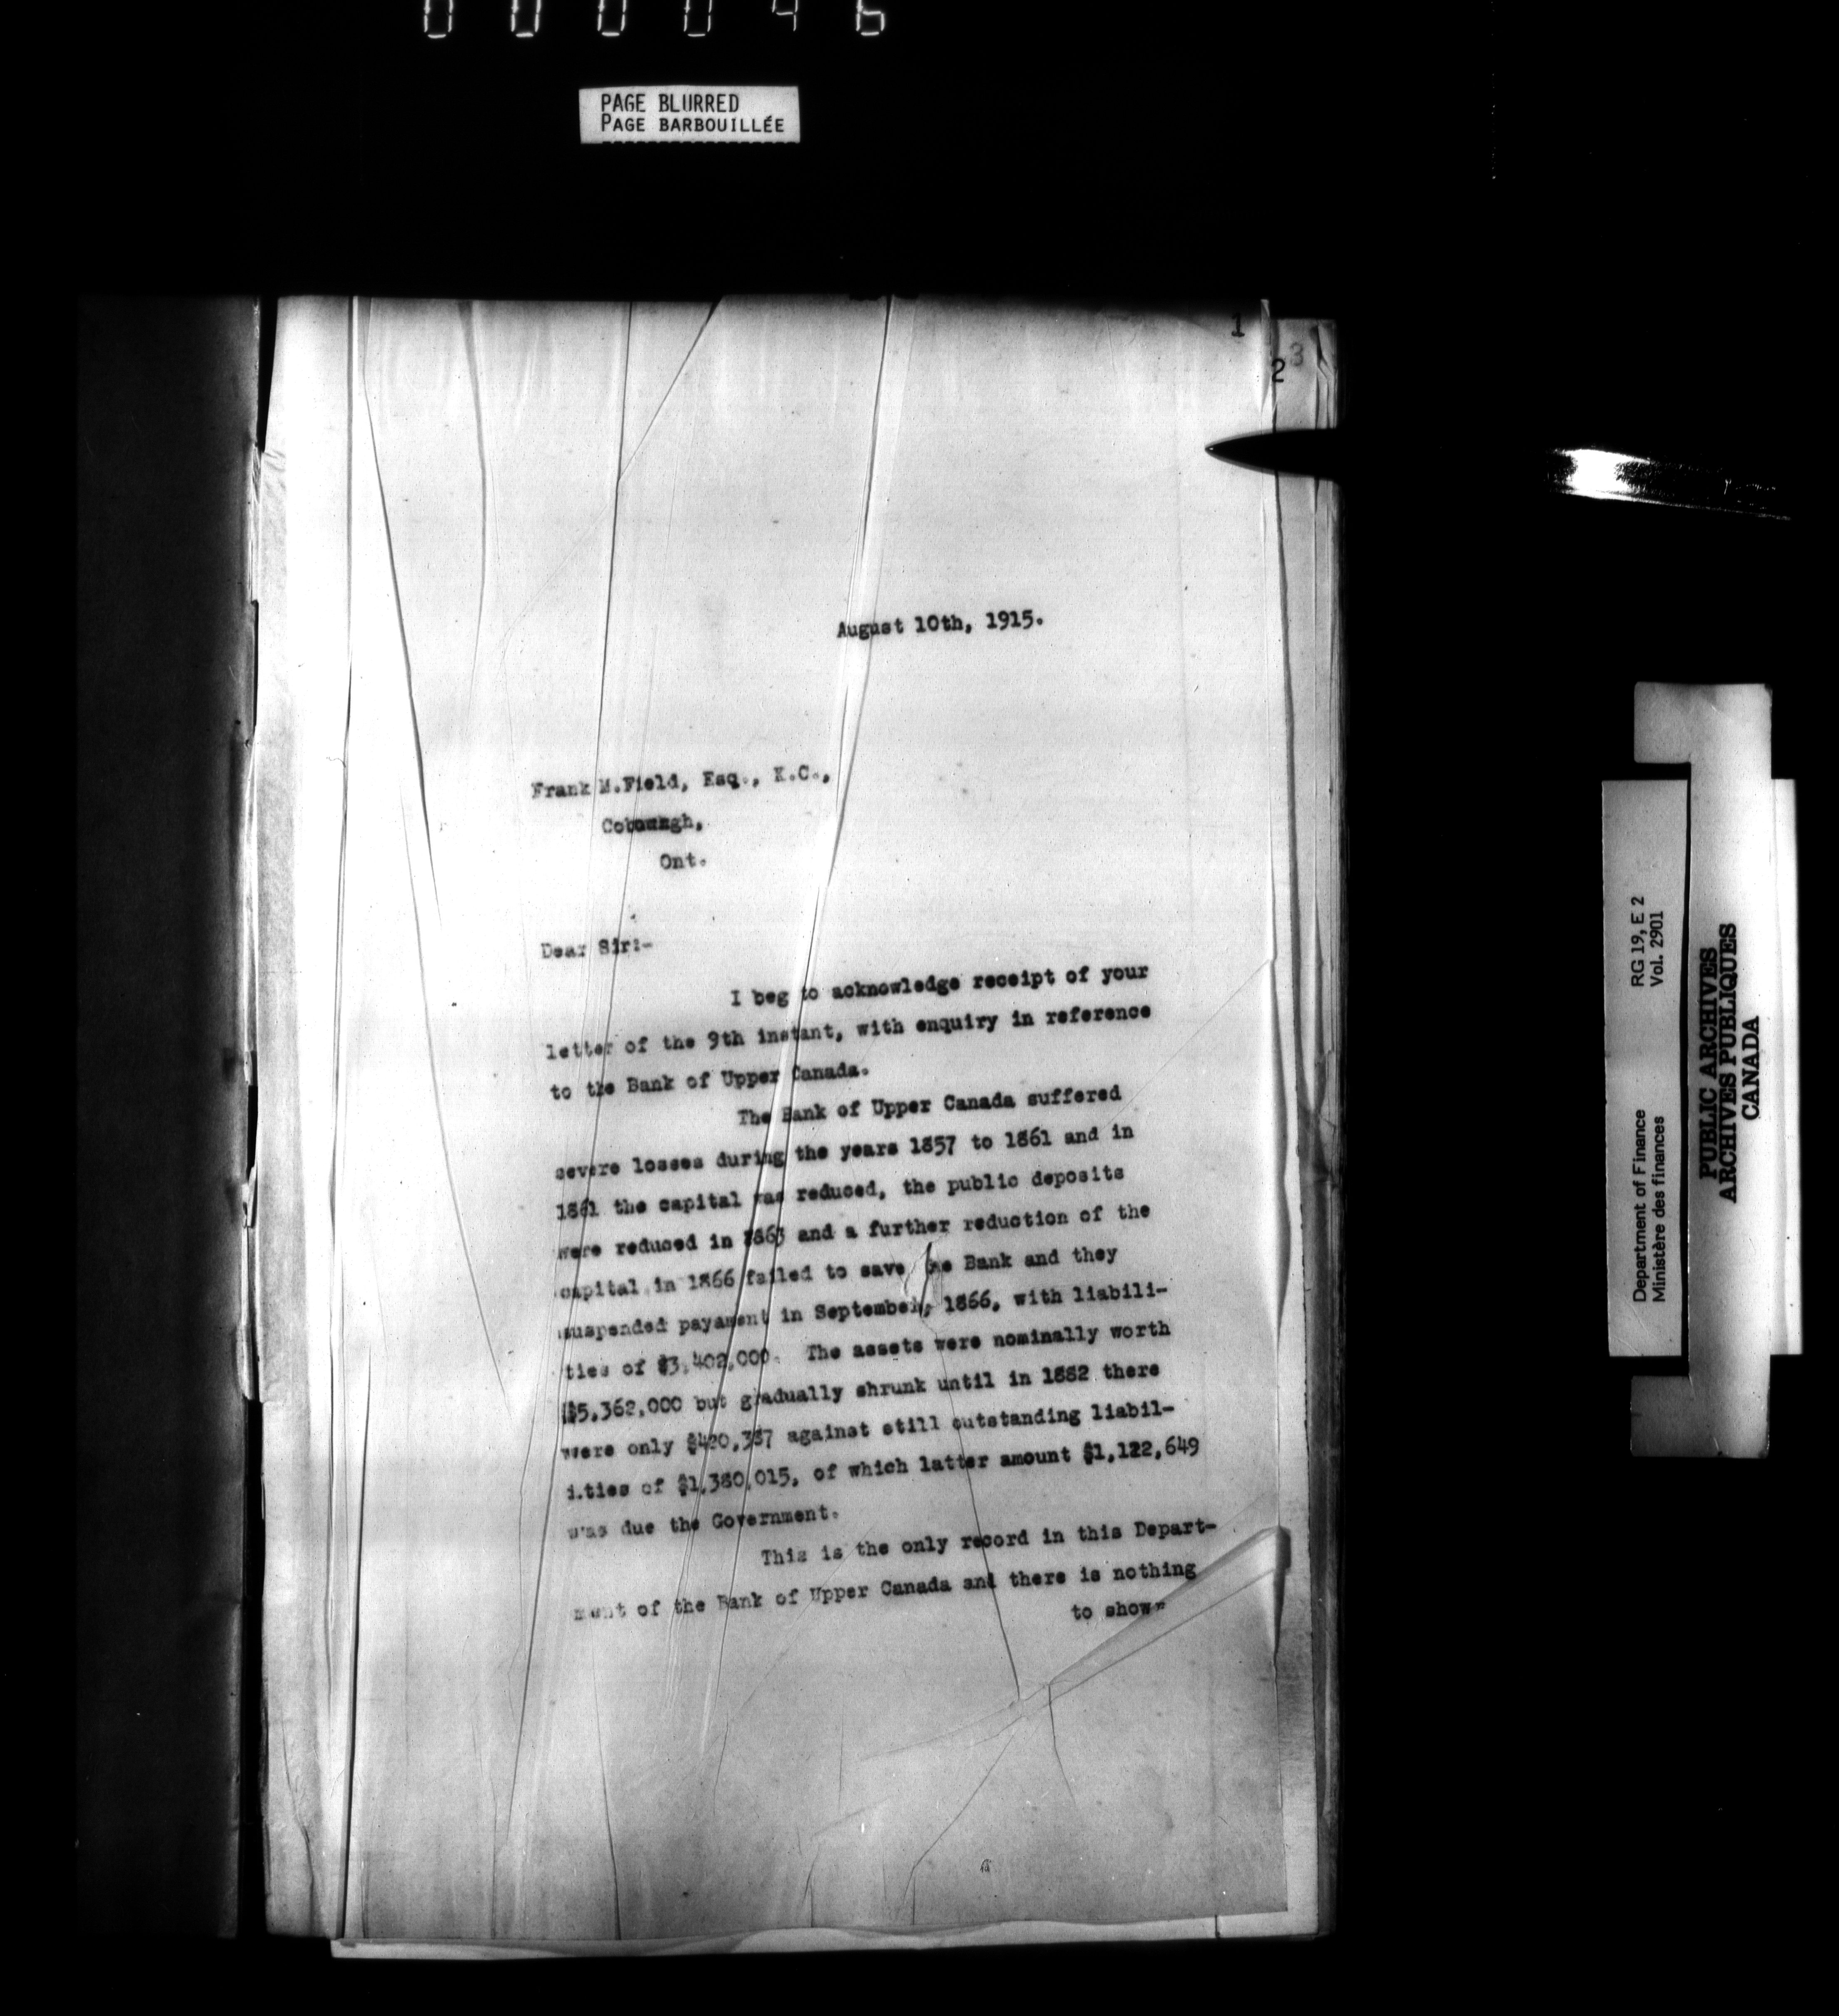 000046
PAGE BLURRED
PAGE BARBOUILLÉE
1
2
3
August 10th, 1915.
Frank M.Field, Esq., K.C.,
Ont.
Dear Sir:-
I beg to acknowledge receipt of your
letter of the 9th instant, with enquiry in reference
to the Bank of Upper Canada.
The Bank of Upper Canada suffered
severe losses during the years 1857 to 1861 and in
1861 the capital was reduced, the public deposits
were reduced in 1863 and a further reduction of the
capital in 1866 failed to save the Bank and they
suspended payament in September, 1866, with liabili-
ties of $3,402,000. The assets were nominally worth
$5,362,000 but gradually shrunk until in 1882 there
were only $420,337 against still outstanding liabil-
ities of $1,380,015, of which latter amount $1,122,649
was due the Government.
This is the only record in this Depart-
ment of the Bank of Upper Canada and there is nothing
to show-
Department of Finance RG 19, E 2
Ministère des finances Vol. 2901
PUBLIC ARCHIVES
ARCHIVES PUBLIQUES
CANADA